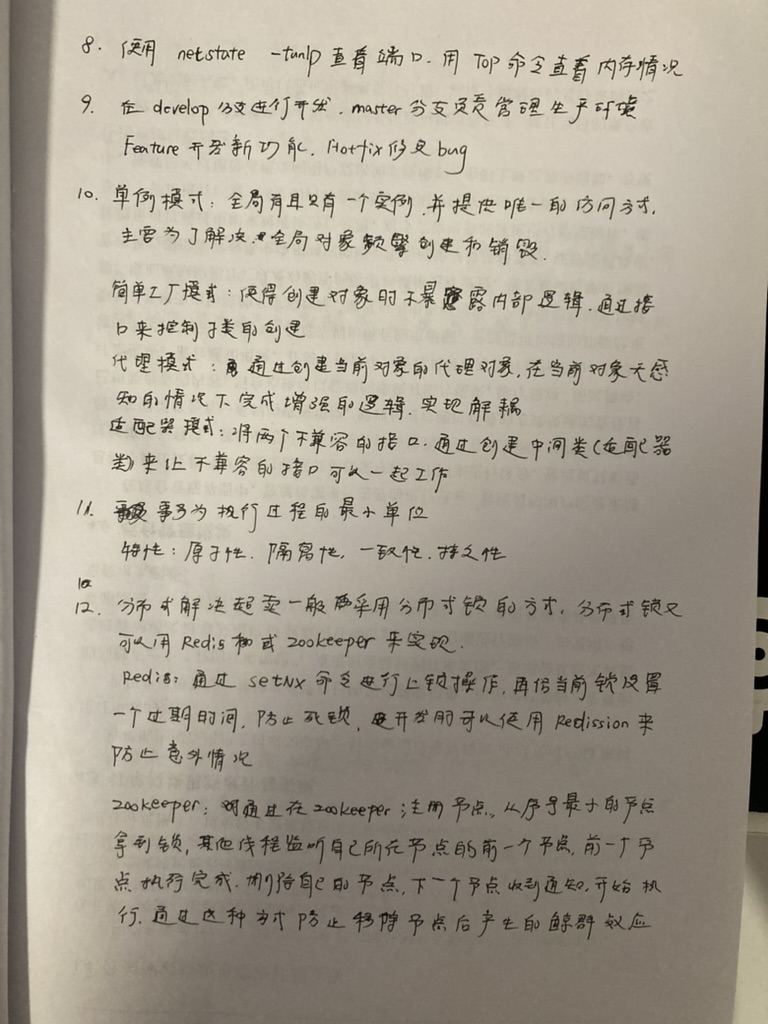 8. 使用 netstate -tunlp 查看端口. 用 Top 命令查看内存情况
9. 在 develop 分支进行开发. master 分支负责管理生产环境
Feature 开发新功能. Hotfix修复bug
10. 单例模式: 全局有且只有一个实例. 并提供唯一的访问方式.
主要为了解决 全局对象频繁创建和销毁.
简单工厂模式: 使得创建对象时不暴露内部逻辑. 通过接
口来控制子类的创建
代理模式: 通过创建当前对象的代理对象, 在当前对象无感
知的情况下完成增强的逻辑. 实现解耦
适配器模式: 将两个不兼容的接口. 通过创建中间类(适配器
类)来让不兼容的接口可以一起工作
11. 事务为执行过程的最小单位
特性: 原子性. 隔离性, 一致性. 持久性
12. 分布式解决超卖一般采用分布式锁的方式. 分布式锁又
可以用 Redis 或 zookeeper 来实现.
Redis: 通过 setNx 命令进行上锁操作. 再给当前锁设置
一个过期时间, 防止死锁, 开发时可以使用 Redission 来
防止意外情况
zookeeper: 通过在zookeeper注册节点, 从序号最小的节点
拿到锁, 其他线程监听自己所在节点的前一个节点, 前一个节
点执行完成. 删除自己的节点, 下一个节点收到通知, 开始执
行. 通过这种方式防止移除节点后产生的鲸群效应